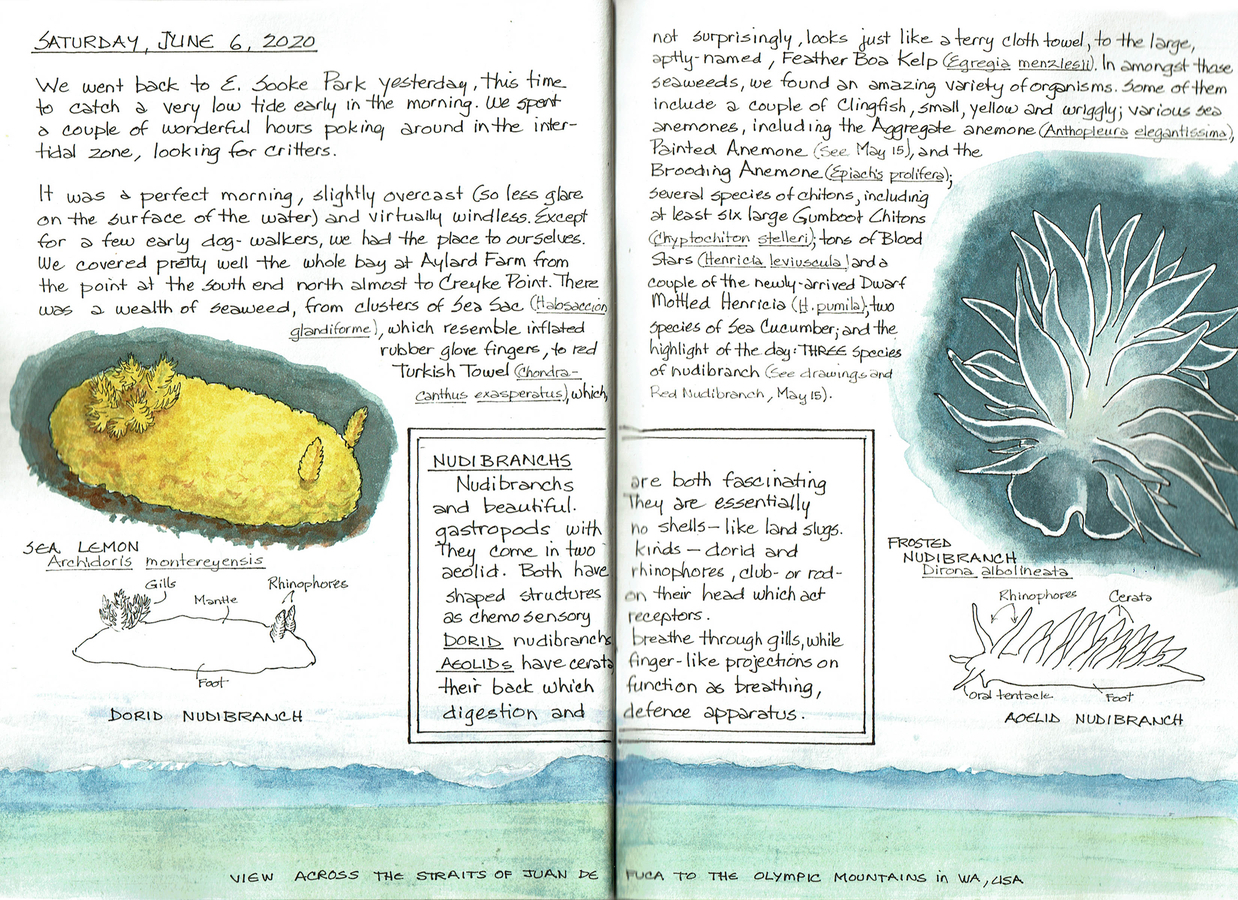 SATURDAY, JUNE 6, 2020
We went back to E. Sooke Park yesterday, this time
to catch a very low tide early in the morning. We spent
a couple of wonderful hours poking around in the inter-
tidal zone, looking for critters.
It was a perfect morning, slightly overcast (so less glare
on the surface of the water) and virtually windless. Except
for a few early dog-walkers, we had the place to ourselves.
We covered pretty well the whole bay at Aylard Farm from
the point at the south end north almost to Creyke Point. There
was a wealth of seaweed, from clusters of Sea Sac (Halosaccion
glandiforme), which resemble inflated
rubber glove fingers, to red
Turkish Towel (Chondra-
canthus exasperatus), which,
not surprisingly, looks just like a terry cloth towel, to the large,
aptly-named, Feather Boa Kelp (Egregia menziesii). In amongst those
seaweeds, we found an amazing variety of organisms. Some of them
include a couple of Clingfish, small, yellow and wriggly; various sea
anemones, including the Aggregate anemone (Anthopleura elegantissima),
Painted Anemone (see May 15), and the
Brooding Anemone (Epiachs prolifera);
several species of chitons, including
at least six large Gumboot Chitons
(Chyptochiton stelleri); tons of Blood
Stars (Henricia leviuscula) and a
couple of the newly-arrived Dwarf
Mottled Henricia (H. pumila); two
species of Sea Cucumber; and the
highlight of the day: THREE species
of nudibranch (see drawings and
Red Nudibranch, May 15).
SEA LEMON
Archidoris montereyensis
Gills
Mantle
Rhinophores
Foot
DORID NUDIBRANCH
NUDIBRANCHS
Nudibranchs are both fascinating
and beautiful. They are essentially
gastropods with no shells – like land slugs.
They come in two kinds – dorid and
aeolid. Both have rhinophores, club- or rod-
shaped structures on their head which act
as chemosensory receptors.
DORID nudibranchs breathe through gills, while
AEOLIDS have cerata, finger-like projections on
their back which function as breathing,
digestion and defence apparatus.
FROSTED
NUDIBRANCH
Dirona albolineata
Rhinophores
Cerata
Oral tentacle
Foot
AOELID NUDIBRANCH
VIEW ACROSS THE STRAITS OF JUAN DE FUCA TO THE OLYMPIC MOUNTAINS in WA, USA